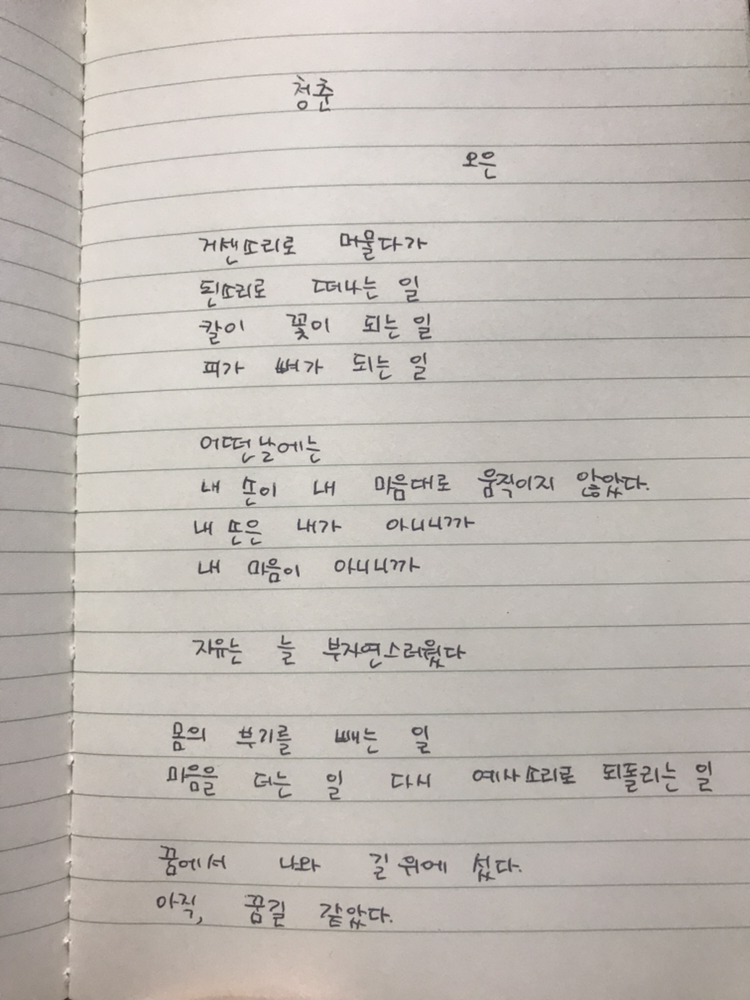 청춘
오은
거센소리로 머물다가
된소리로 떠나는 일
칼이 꽃이 되는 일
피가 뼈가 되는 일
어떤 날에는
내 손이 내 마음대로 움직이지 않았다.
내 손은 내가 아니니까
내 마음이 아니니까
자유는 늘 부자연스러웠다
몸의 부기를 빼는 일
마음을 더는 일 다시 예사소리로 되돌리는 일
꿈에서 나와 길 위에 섰다.
아직, 꿈길 같았다.